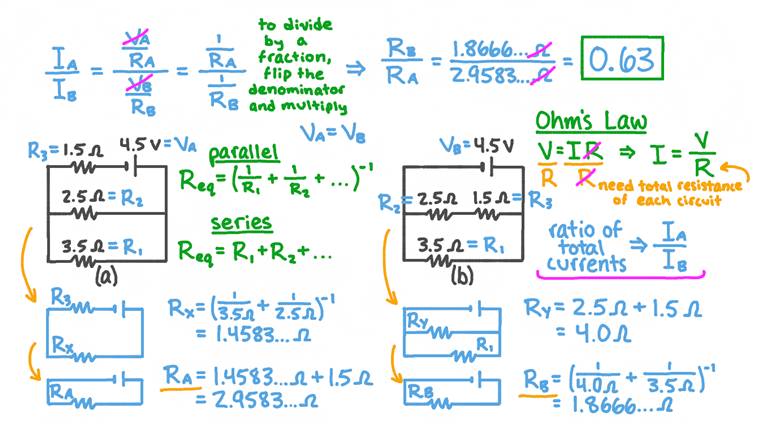 I_A/I_B = (V_A/R_A)/(V_B/R_B) = (1/R_A)/(1/R_B)
to divide
by a
fraction,
flip the
denominator
and multiply
⇒ R_B/R_A = 1.8666...Ω/2.9583...Ω = 0.63
V_A = V_B
R₃ = 1.5 Ω
4.5 V = V_A
2.5 Ω = R₂
3.5 Ω = R₁
(a)
parallel
R_eq = (1/R₁ + 1/R₂ + ...)⁻¹
series
R_eq = R₁ + R₂ + ...
V_B = 4.5 V
R₂ = 2.5 Ω
1.5 Ω = R₃
3.5 Ω = R₁
(b)
Ohm's Law
V/R = IR/R ⇒ I = V/R
need total resistance
of each circuit
ratio of
total
currents
⇒ I_A/I_B
R₃
R_X
R_X = (1/3.5 Ω + 1/2.5 Ω)⁻¹
= 1.4583... Ω
R_A
R_A = 1.4583... Ω + 1.5 Ω
= 2.9583... Ω
R_Y
R₁
R_Y = 2.5 Ω + 1.5 Ω
= 4.0 Ω
R_B
R_B = (1/4.0 Ω + 1/3.5 Ω)⁻¹
= 1.8666... Ω